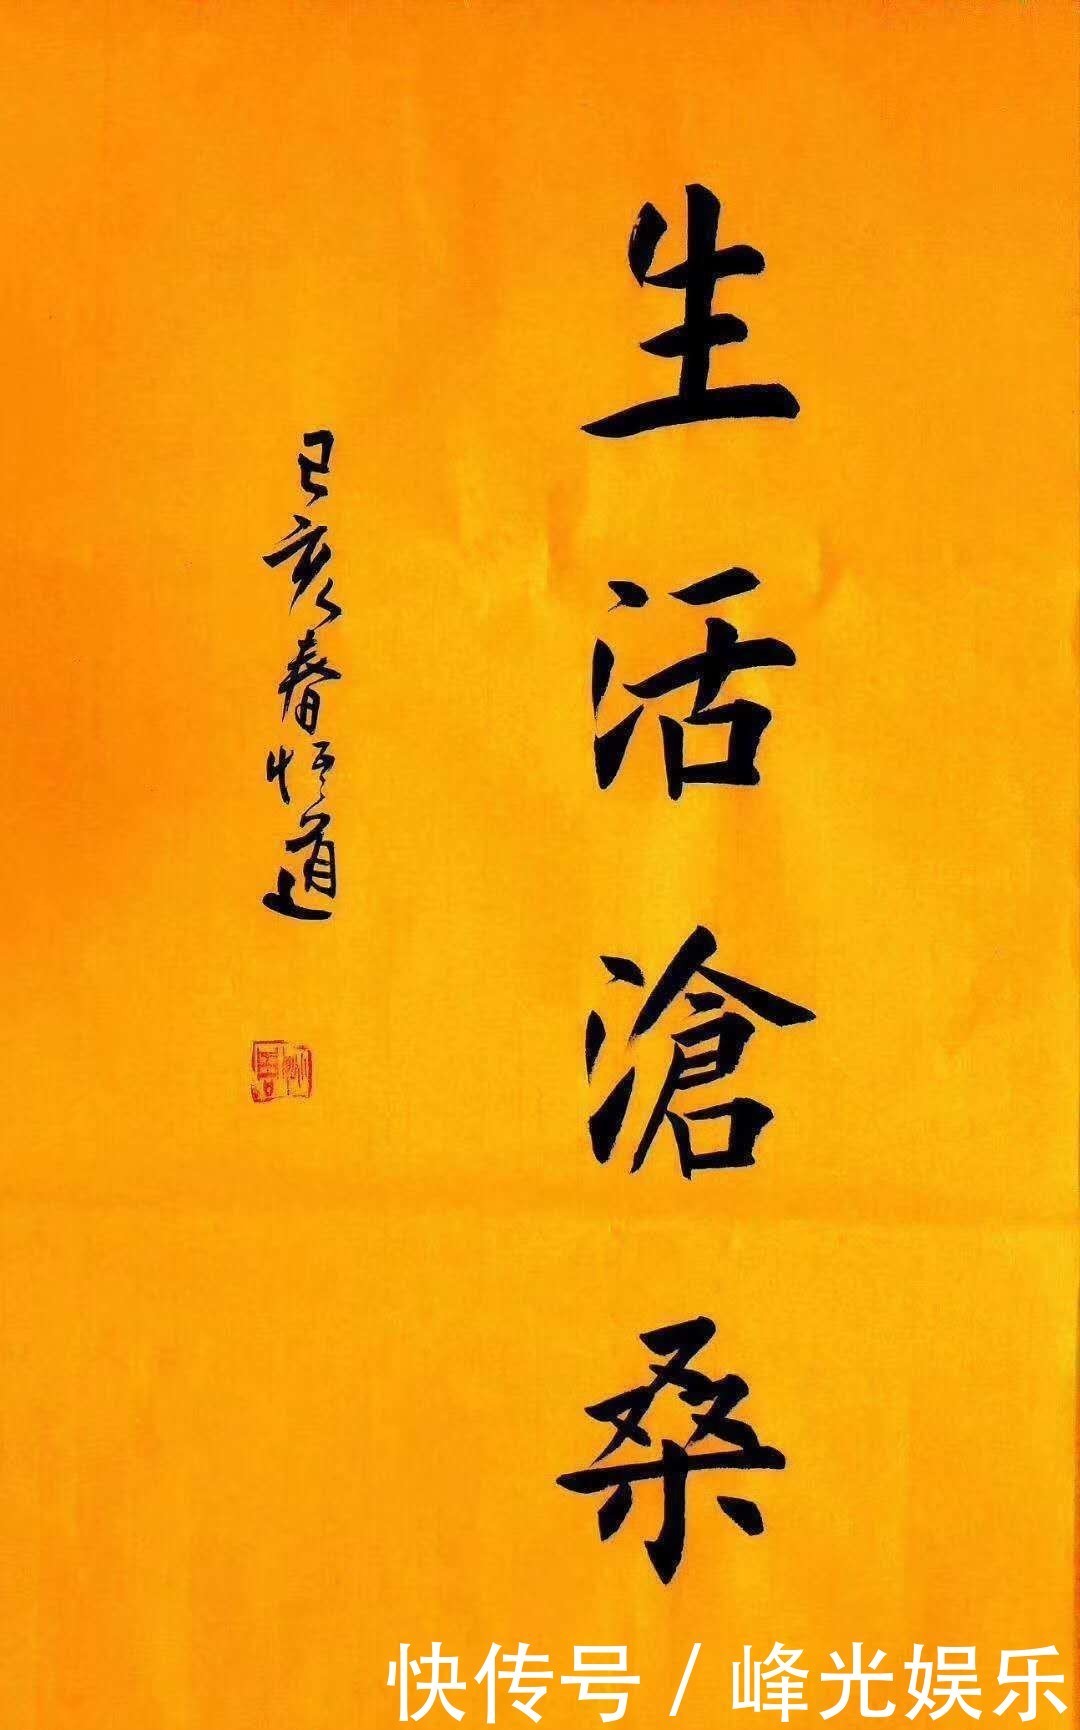 生活滄桑
己亥春悟道
快传号 / 峰光娱乐